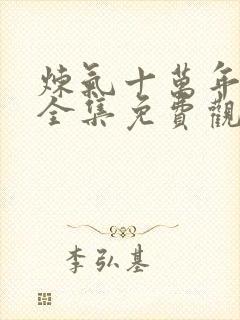 煉氣十萬年
全集免費觀
李弘基